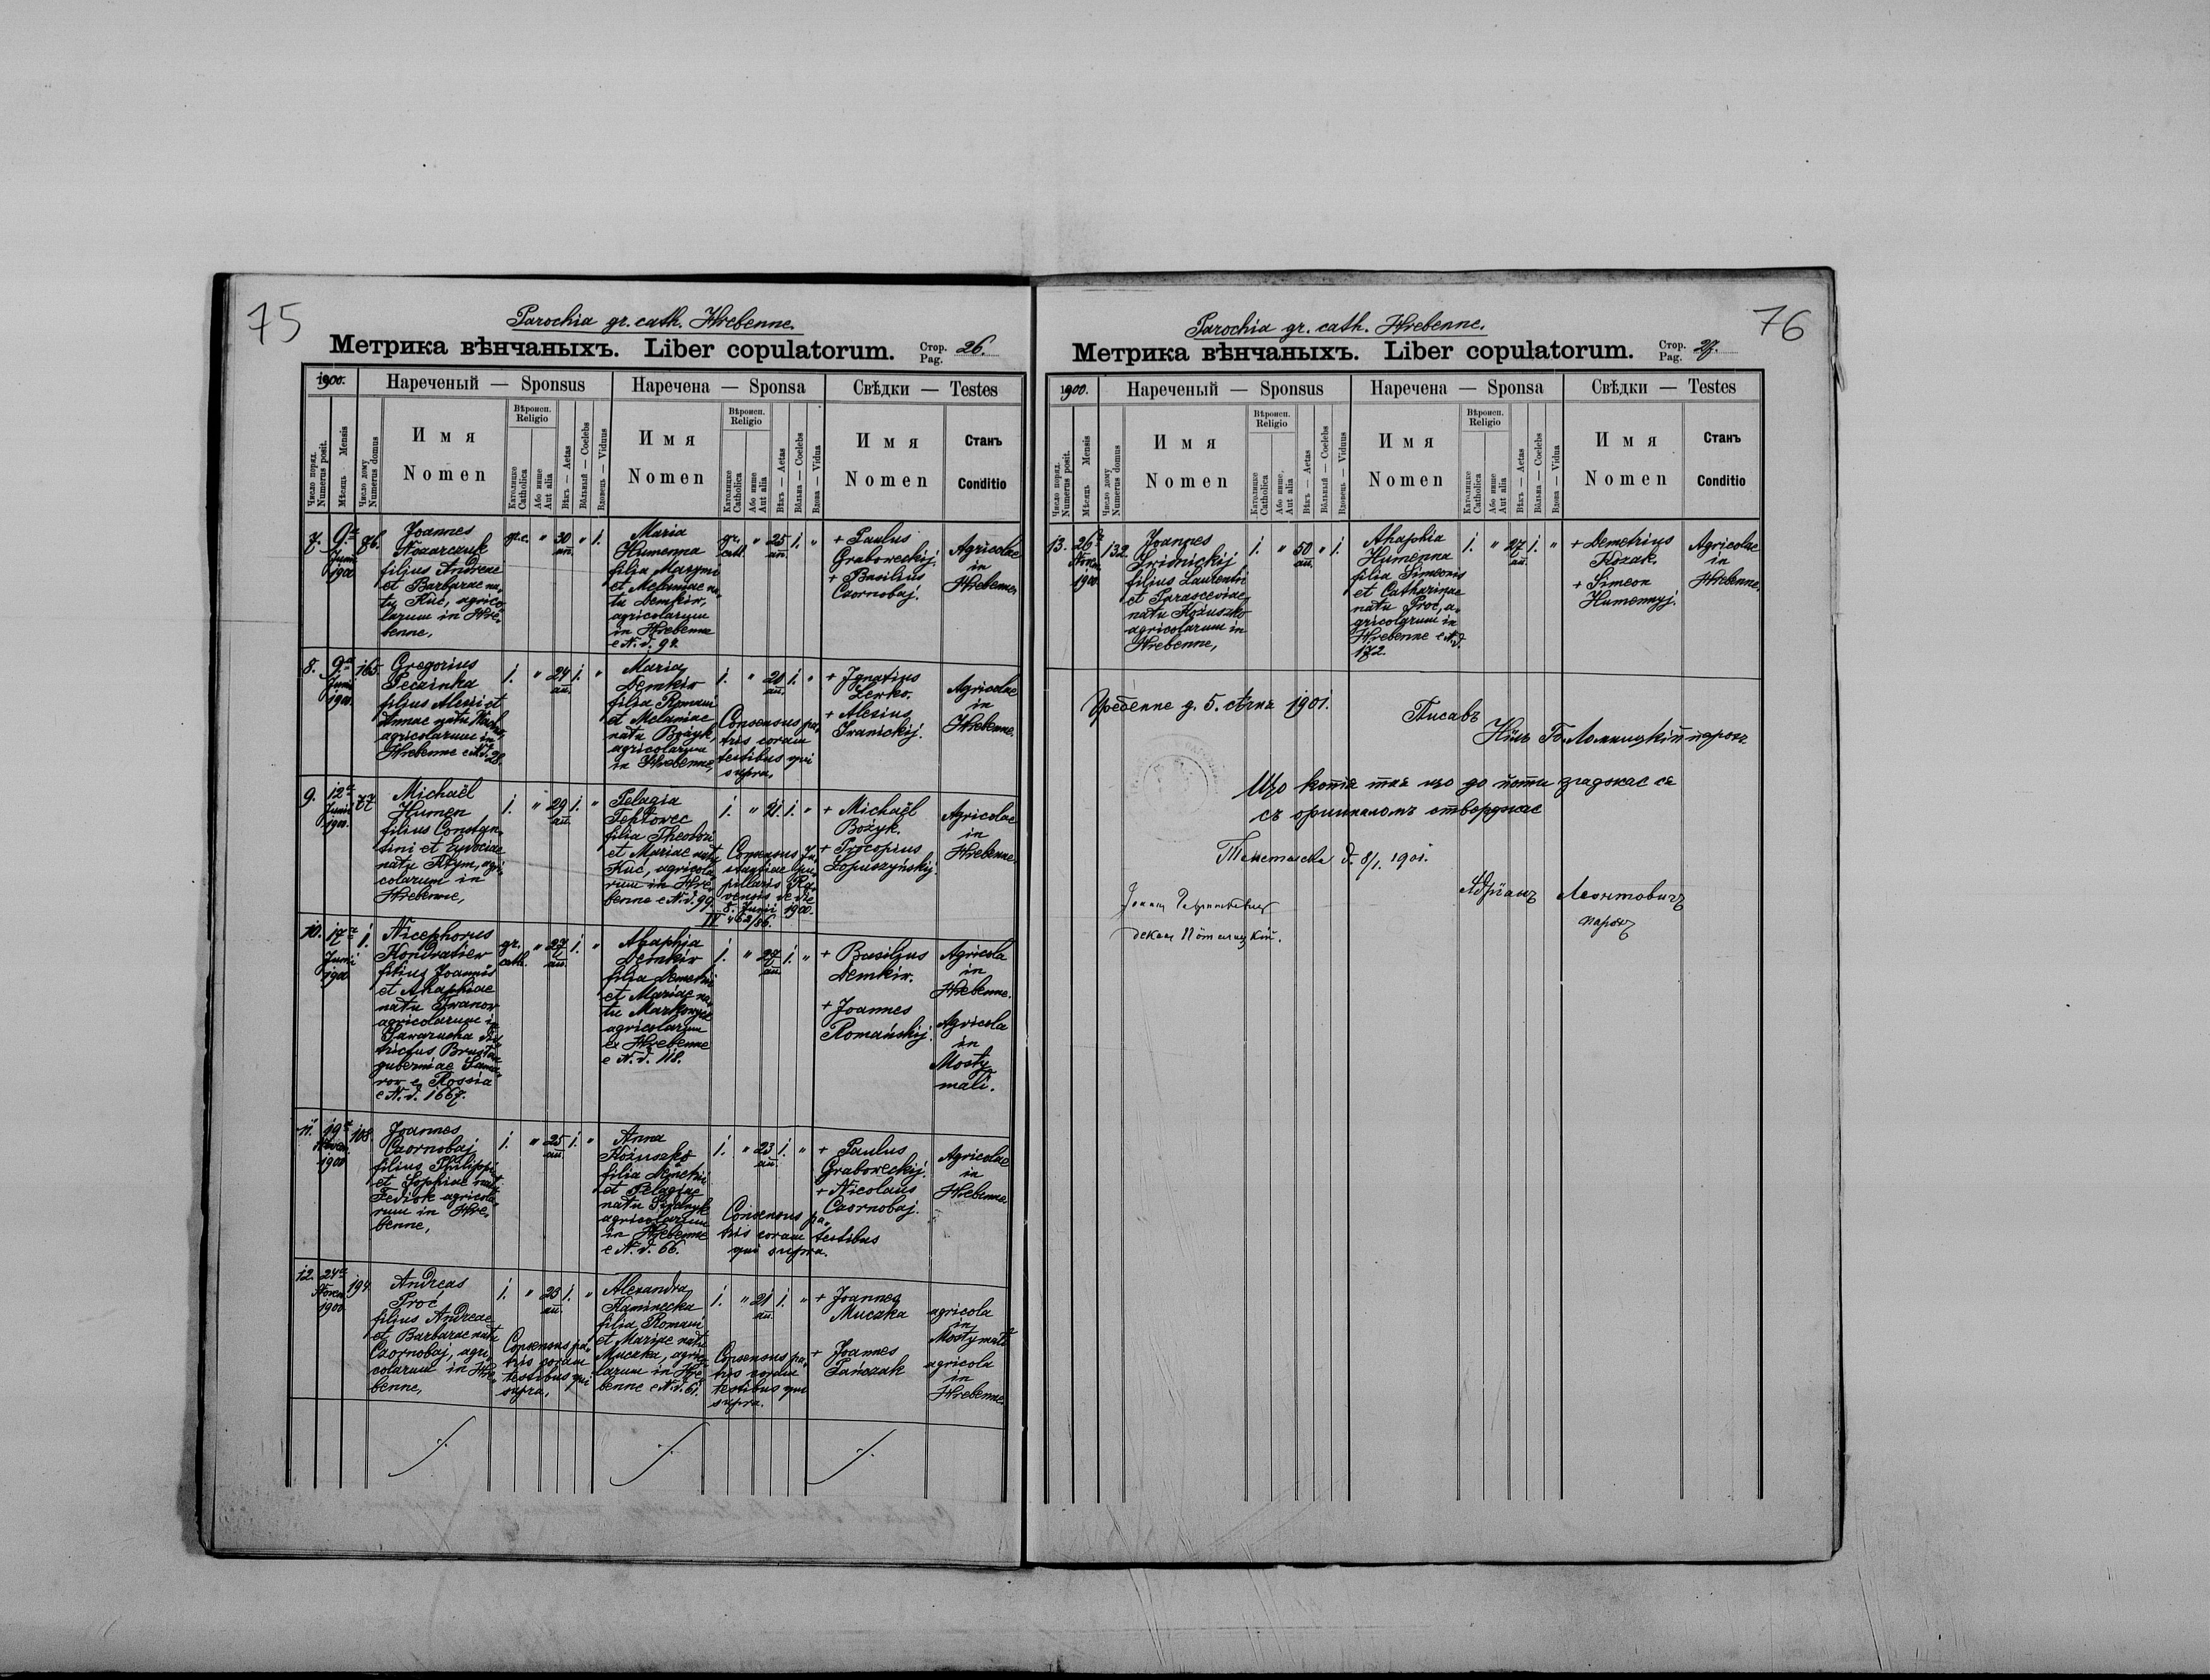 75
Parochia gr. cath. Hrebenne.
Метрика вѣнчаныхъ. Liber copulatorum.
Стор.
Pag. 26.
1900.
Нареченый — Sponsus
Наречена — Sponsa
Свѣдки — Testes
Число поряд.
Numerus posit.
Мѣсяць Mensis
Число дому
Numerus domus
И м я
Nomen
Вѣроисп.
Religio
Католицке
Catholica
Або инше
Aut alia
Вѣкъ — Aetas
Вôльный — Coelebs
Вдовець — Viduus
И м я
Nomen
Вѣроисп.
Religio
Католицке
Catholica
Або инше
Aut alia
Вѣкъ — Aetas
Вôльна — Coelebs
Вдова — Vidua
И м я
Nomen
Станъ
Conditio
7.
9.a
Junii
1900
86.
Joannes
Kozarczuk
filius Andreae
et Barbarae na-
tu Kuć, agrico-
larum in Hre-
benne,
gr.c. " 30 " 1.
an.
Maria
Humenna
filia Maxymi
et Melaniae na-
tu Demkiw,
agricolarum
in Hrebenne
e N. d. 94.
gr.
cath. " 25 1. "
an.
+ Paulus
Graboweckij.
+ Basilius
Czornobaj.
Agricolae
in
Hrebenne.
8.
9.a
Junii
1900.
165.
Gregorius
Peczinka
filius Alexii et
Annae natu
agricolarum in
Hrebenne e N. d. 28.
1. " 24 1. "
an.
Maria
Demkiw
filia Romani
et Melaniae
natu Bożyk,
agricolarum
in Hrebenne,
1. " 20 1. "
an.
Consensus pa-
tris coram
testibus qui
supra.
+ Ignatius
Lewko.
+ Alexius
Iwanickij.
Agricolae
in
Hrebenne.
9.
12a
Junii
1900.
77
Michaël
Humen
filius Constan-
tini et Eudociae
natu Atym, agri-
colarum in
Hrebenne,
1. " 29 1. "
an.
Pelagia
Teptowec
filia Theodori
et Mariae natu
Kuć, agricola-
rum in Hre-
benne e N. d. 99.
1. " 21. 1. "
Consensus Ju-
pillaris Ra-
vensis de die
8. Junii 1900.
IV 462/86.
+ Michaël
Bożyk.
+ Procopius
Łopuszyńskij.
Agricolae
in
Hrebenne.
10.
17a
Junii
1900
1.
Nicephorus
Kondratiew
filius Joannis
et Ahaphiae
natu Iwanow
agricolarum in
e Rossia
e N. d. 1667.
gr.
cath. " 27 1. "
an.
Ahaphia
Demkiw
filia Demetri
et Mariae na-
tu
agricolarum
ex Hrebenne
e N. d. 118.
1. " 27 1. "
an.
+ Basilius
Demkiw.
+ Joannes
Romańskij.
Agricola
in
Hrebenne.
Agricola
in
Mosty
małi.
11.
19a
Novem.
1900
108
Joannes
Czornobaj
filius Philippi
et Sophiae natu
Fediok agricola-
rum in Hre-
benne,
1. " 25 1. "
an.
Anna
Kożuszko
filia Demetri
et Pelagiae
natu
agricolarum
in Hrebenne
e N. d. 66.
1. " 23 1. "
an.
Consensus pa-
tris coram testibus
qui supra.
+ Paulus
Graboweckij.
+ Nicolaus
Czornobaj.
Agricolae
in
Hrebenne
12.
24a
Novem.
1900
194
Andreas
Proć
filius Andreae
et Barbarae natu
Czornobaj, agri-
colarum in Hre-
benne,
1. " 23 1. "
an.
Consensus pa-
tris coram
testibus qui
supra.
Alexandra
Kaminecka
filia Romani
et Mariae natu
Muczka, agrico-
larum in Hre-
benne e N. d. 61.
1. " 21 1. "
an.
Consensus pa-
tris coram
testibus qui
supra.
+ Joannes
Muczka
+ Joannes
Pańczak
agricola
in
Mosty małi
agricola
in
Hrebenne.
76
Parochia gr. cath. Hrebenne.
Метрика вѣнчаныхъ. Liber copulatorum.
Стор.
Pag. 27.
1900.
Нареченый — Sponsus
Наречена — Sponsa
Свѣдки — Testes
Число поряд.
Numerus posit.
Мѣсяць Mensis
Число дому
Numerus domus
И м я
Nomen
Вѣроисп.
Religio
Католицке
Catholica
Або инше,
Aut alia
Вѣкъ — Aetas
Вôльный — Coelebs
Вдовець — Viduus
И м я
Nomen
Вѣроисп.
Religio
Католицке
Catholica
Або инше
Aut alia
Вѣкъ — Aetas
Вôльна — Coelebs
Вдова — Vidua
И м я
Nomen
Станъ
Conditio
13.
26a
Novem.
1900.
132
Joannes
Sridnickij
filius Laurentii
et Parasceviae
natu Kożuszko
agricolarum in
Hrebenne,
1. " 50 " 1.
an.
Ahaphia
Humenna
filia Simeonis
et Catharinae
natu Proć, a-
gricolarum in
Hrebenne e N. d.
172.
1. " 27 1. "
an.
+ Demetrius
Kozak.
+ Simeon
Humennyj.
Agricolae
in
Hrebenne.
Гребенне д. 5. сѣчня 1901.
Писавъ
Нилъ Б. Ломницкій парох.
Що копія тая що до йоти згаджає ся
съ оригиналомъ стверджає
д. 8/1. 1901.
Адріанъ Леонтовичъ
парохъ
декан Потилицкій.